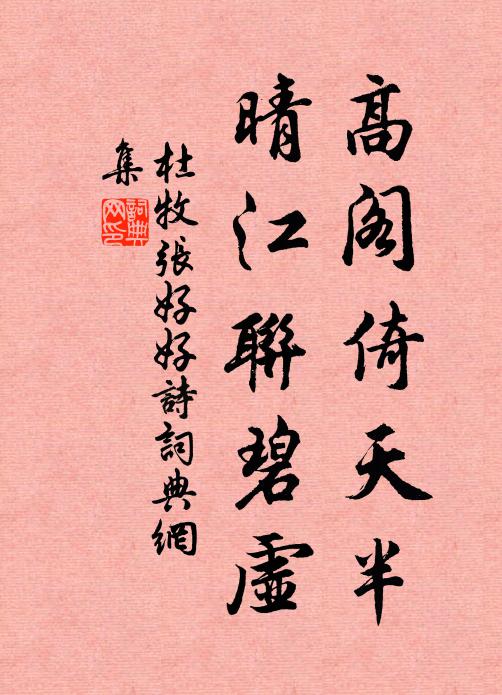 高阁倚天半
晴江聯碧虛
杜牧張好好詩詞典網
集
詞典
网印